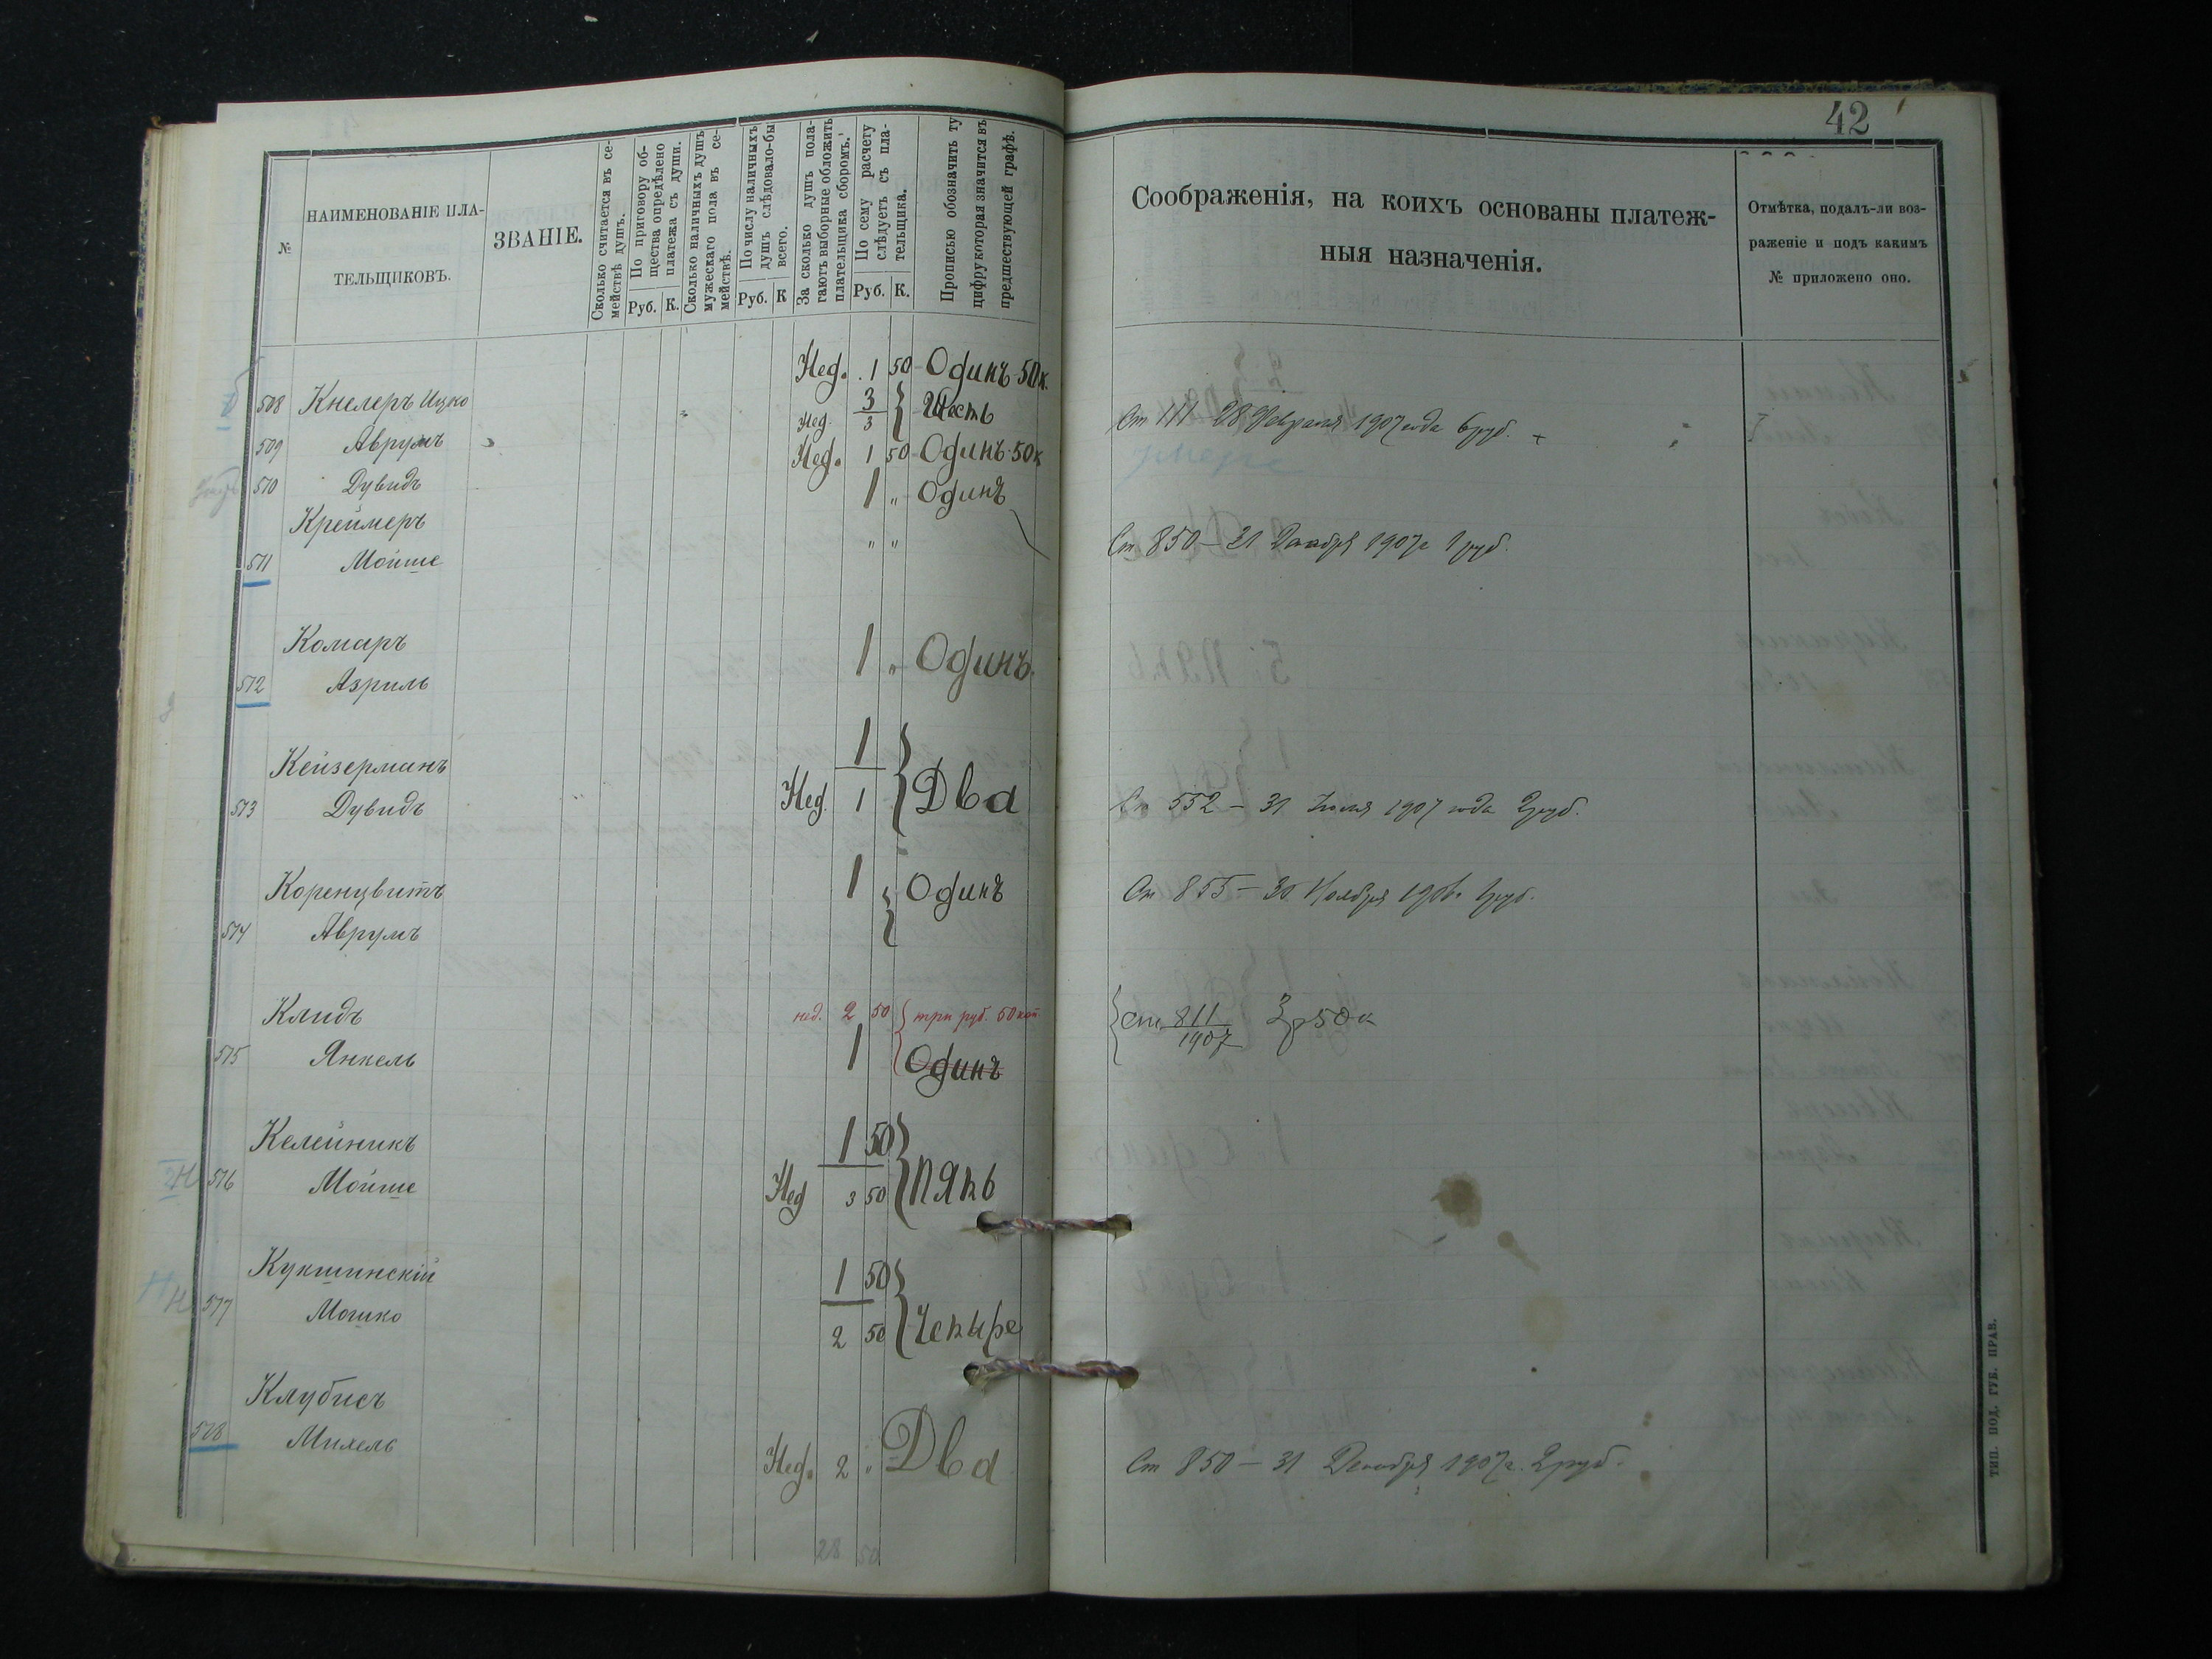 42
№
НАИМЕНОВАНІЕ ПЛА-
ТЕЛЬЩИКОВЪ.
ЗВАНІЕ.
Сколько считается въ се-
мействѣ душъ.
По приговору об-
щества опредѣлено
платежа съ души.
Руб. К.
Сколько наличныхъ душъ
мужескаго пола въ се-
мействѣ.
По числу наличныхъ
душъ слѣдовало-бы
всего.
Руб. К
За сколько душъ пола-
гаютъ выборные обложить
плательщика сборомъ.
По сему расчету
слѣдуетъ съ пла-
тельщика.
Руб. К.
Прописью обозначить ту
цифру которая значится въ
предшествующей графѣ.
Соображенія, на коихъ основаны платеж-
ныя назначенія.
Отмѣтка, подалъ-ли воз-
раженіе и подъ какимъ
№ приложено оно.
Нед. 1 50 Одинъ 50 к.
508 Кнелеръ Ицко 3 Шесть
Нед. 3
Ст 111 28 Февраля 1907 года 6 руб. +
509 Аврумъ Нед. 1 50 Одинъ 50 к
умеръ
510 Дувидъ 1 " Одинъ
Креймеръ
" "
571 Мойше Ст 850 — 31 Декабря 1907 г 1 руб.
Комаръ 1 " Одинъ
572 Азриль
Кейзерманъ 1
573 Дувидъ Нед. 1 Два Ст 552 — 31 Іюля 1907 года 2 руб.
Коренцвитъ 1 " Одинъ Ст 855 — 30 Ноября 1906 г 1 руб.
574 Аврумъ
Клидъ нед. 2 50 три руб. 50 коп. ст 811 3 р 50 к
1907
575 Янкель 1 Одинъ
Келейникъ 1 50
576 Мойше Нед 3 50 Пять
Кукшинскій 1 50
577 Мошко 2 50 Четыре
Клубисъ
578 Михель Нед. 2 " Два Ст 850 — 31 Декабря 1907 г. 2 руб.
28 50
ТИП. ПОД. ГУБ. ПРАВ.